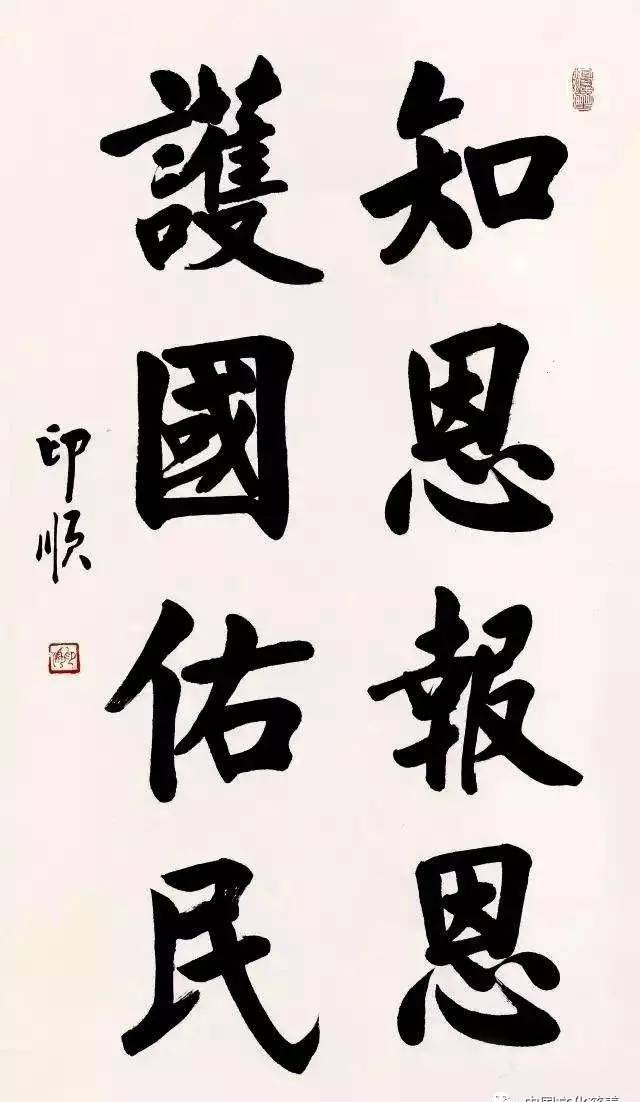 知恩報恩
護國佑民
印順